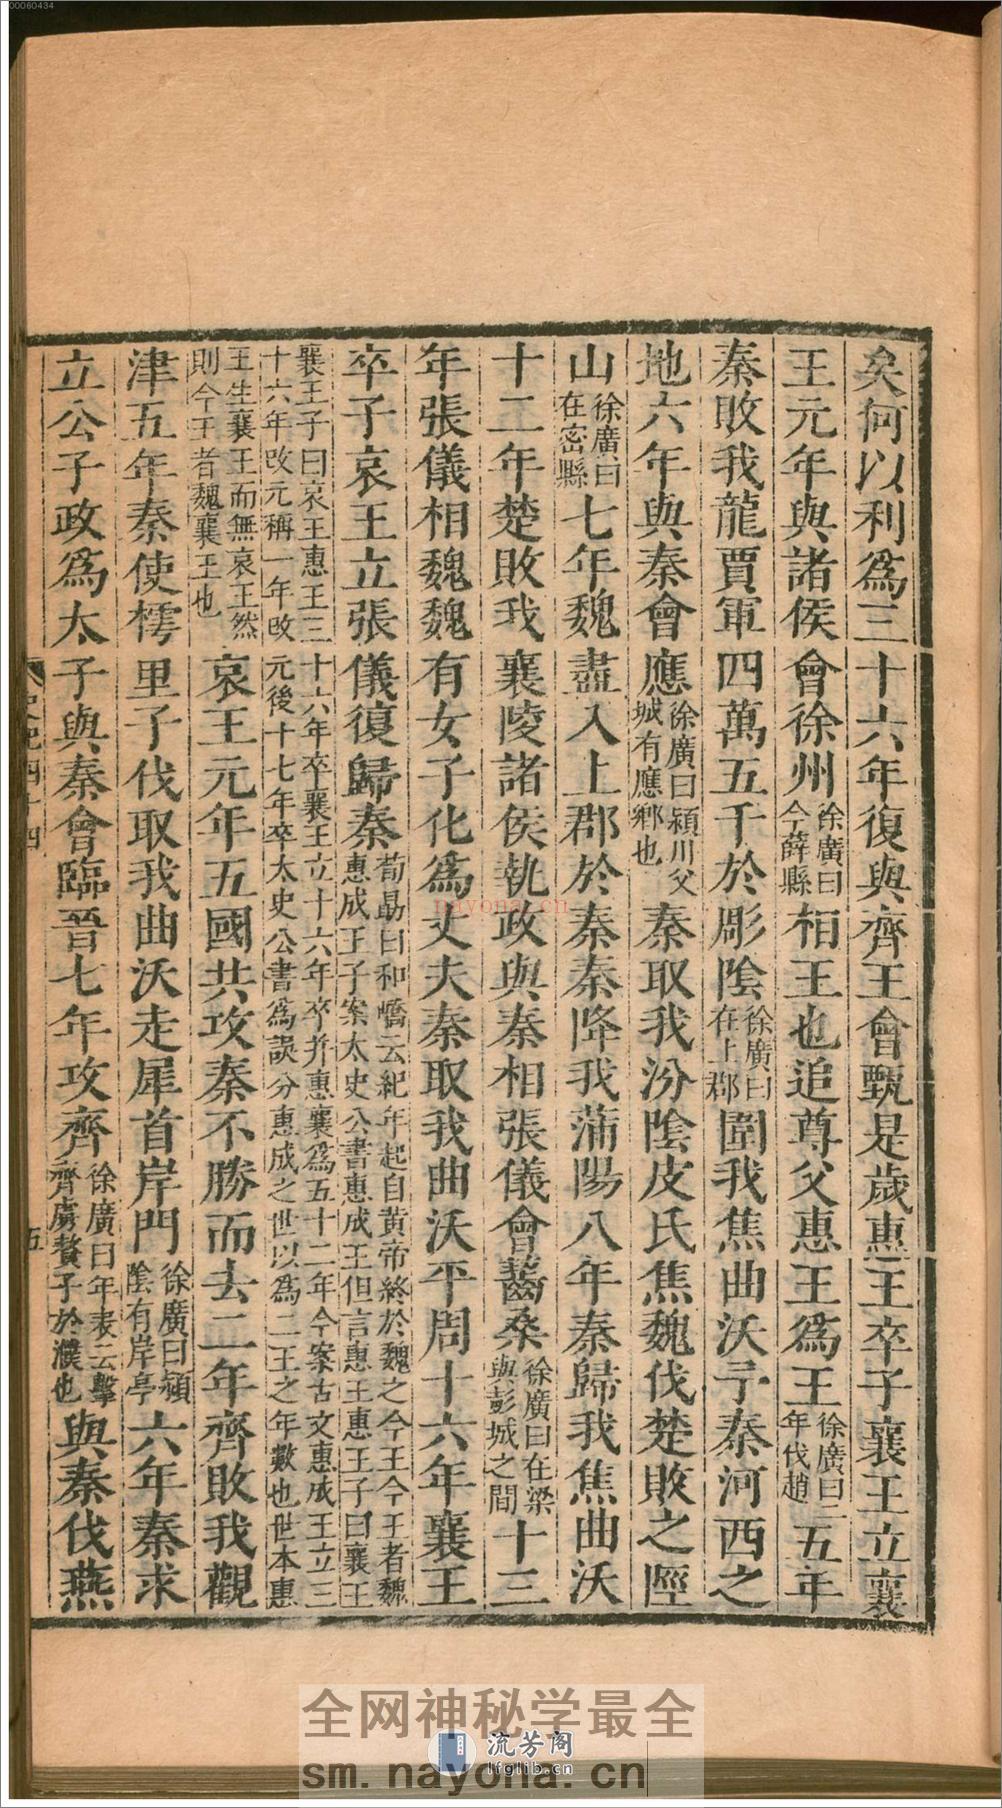 00060434
矣何以利爲三十六年復與齊王會甄是歲惠王卒子襄王立襄
王元年與諸侯會徐州徐廣曰今薛縣相王也追尊父惠王爲王徐廣曰二年伐趙五年
秦敗我龍賈軍四萬五千於彫陰徐廣曰在上郡圍我焦曲沃予秦河西之
地六年與秦會應徐廣曰潁川父城有應鄉也秦取我汾陰皮氏焦魏伐楚敗之陘
山徐廣曰在密縣七年魏盡入上郡於秦秦降我蒲陽八年秦歸我焦曲沃
十二年楚敗我襄陵諸侯執政與秦相張儀會齧桑徐廣曰在梁與彭城之間十三
年張儀相魏魏有女子化爲丈夫秦取我曲沃平周十六年襄王
卒子哀王立張儀復歸秦荀勗曰和嶠云紀年起自黃帝終於魏之今王今王者魏惠成王子案太史公書惠成王但言惠王惠王子曰襄王
襄王子曰哀王惠王三十六年卒襄王立十六年卒并惠襄爲五十二年今案古文惠成王立三十六年改元稱一年改元後十七年卒太史公書爲誤分惠成之世以爲二王之年數也世本惠
王生襄王而無哀王然則今王者魏襄王也哀王元年五國共攻秦不勝而去二年齊敗我觀
津五年秦使樗里子伐取我曲沃走犀首岸門徐廣曰潁陰有岸亭六年秦求
立公子政爲太子與秦會臨晉七年攻齊徐廣曰年表云擊齊虜贅子於濮也與秦伐燕
五
nayona.cn
全网神秘学最全
流芳阁
lfglib.cn
sm.nayona.cn